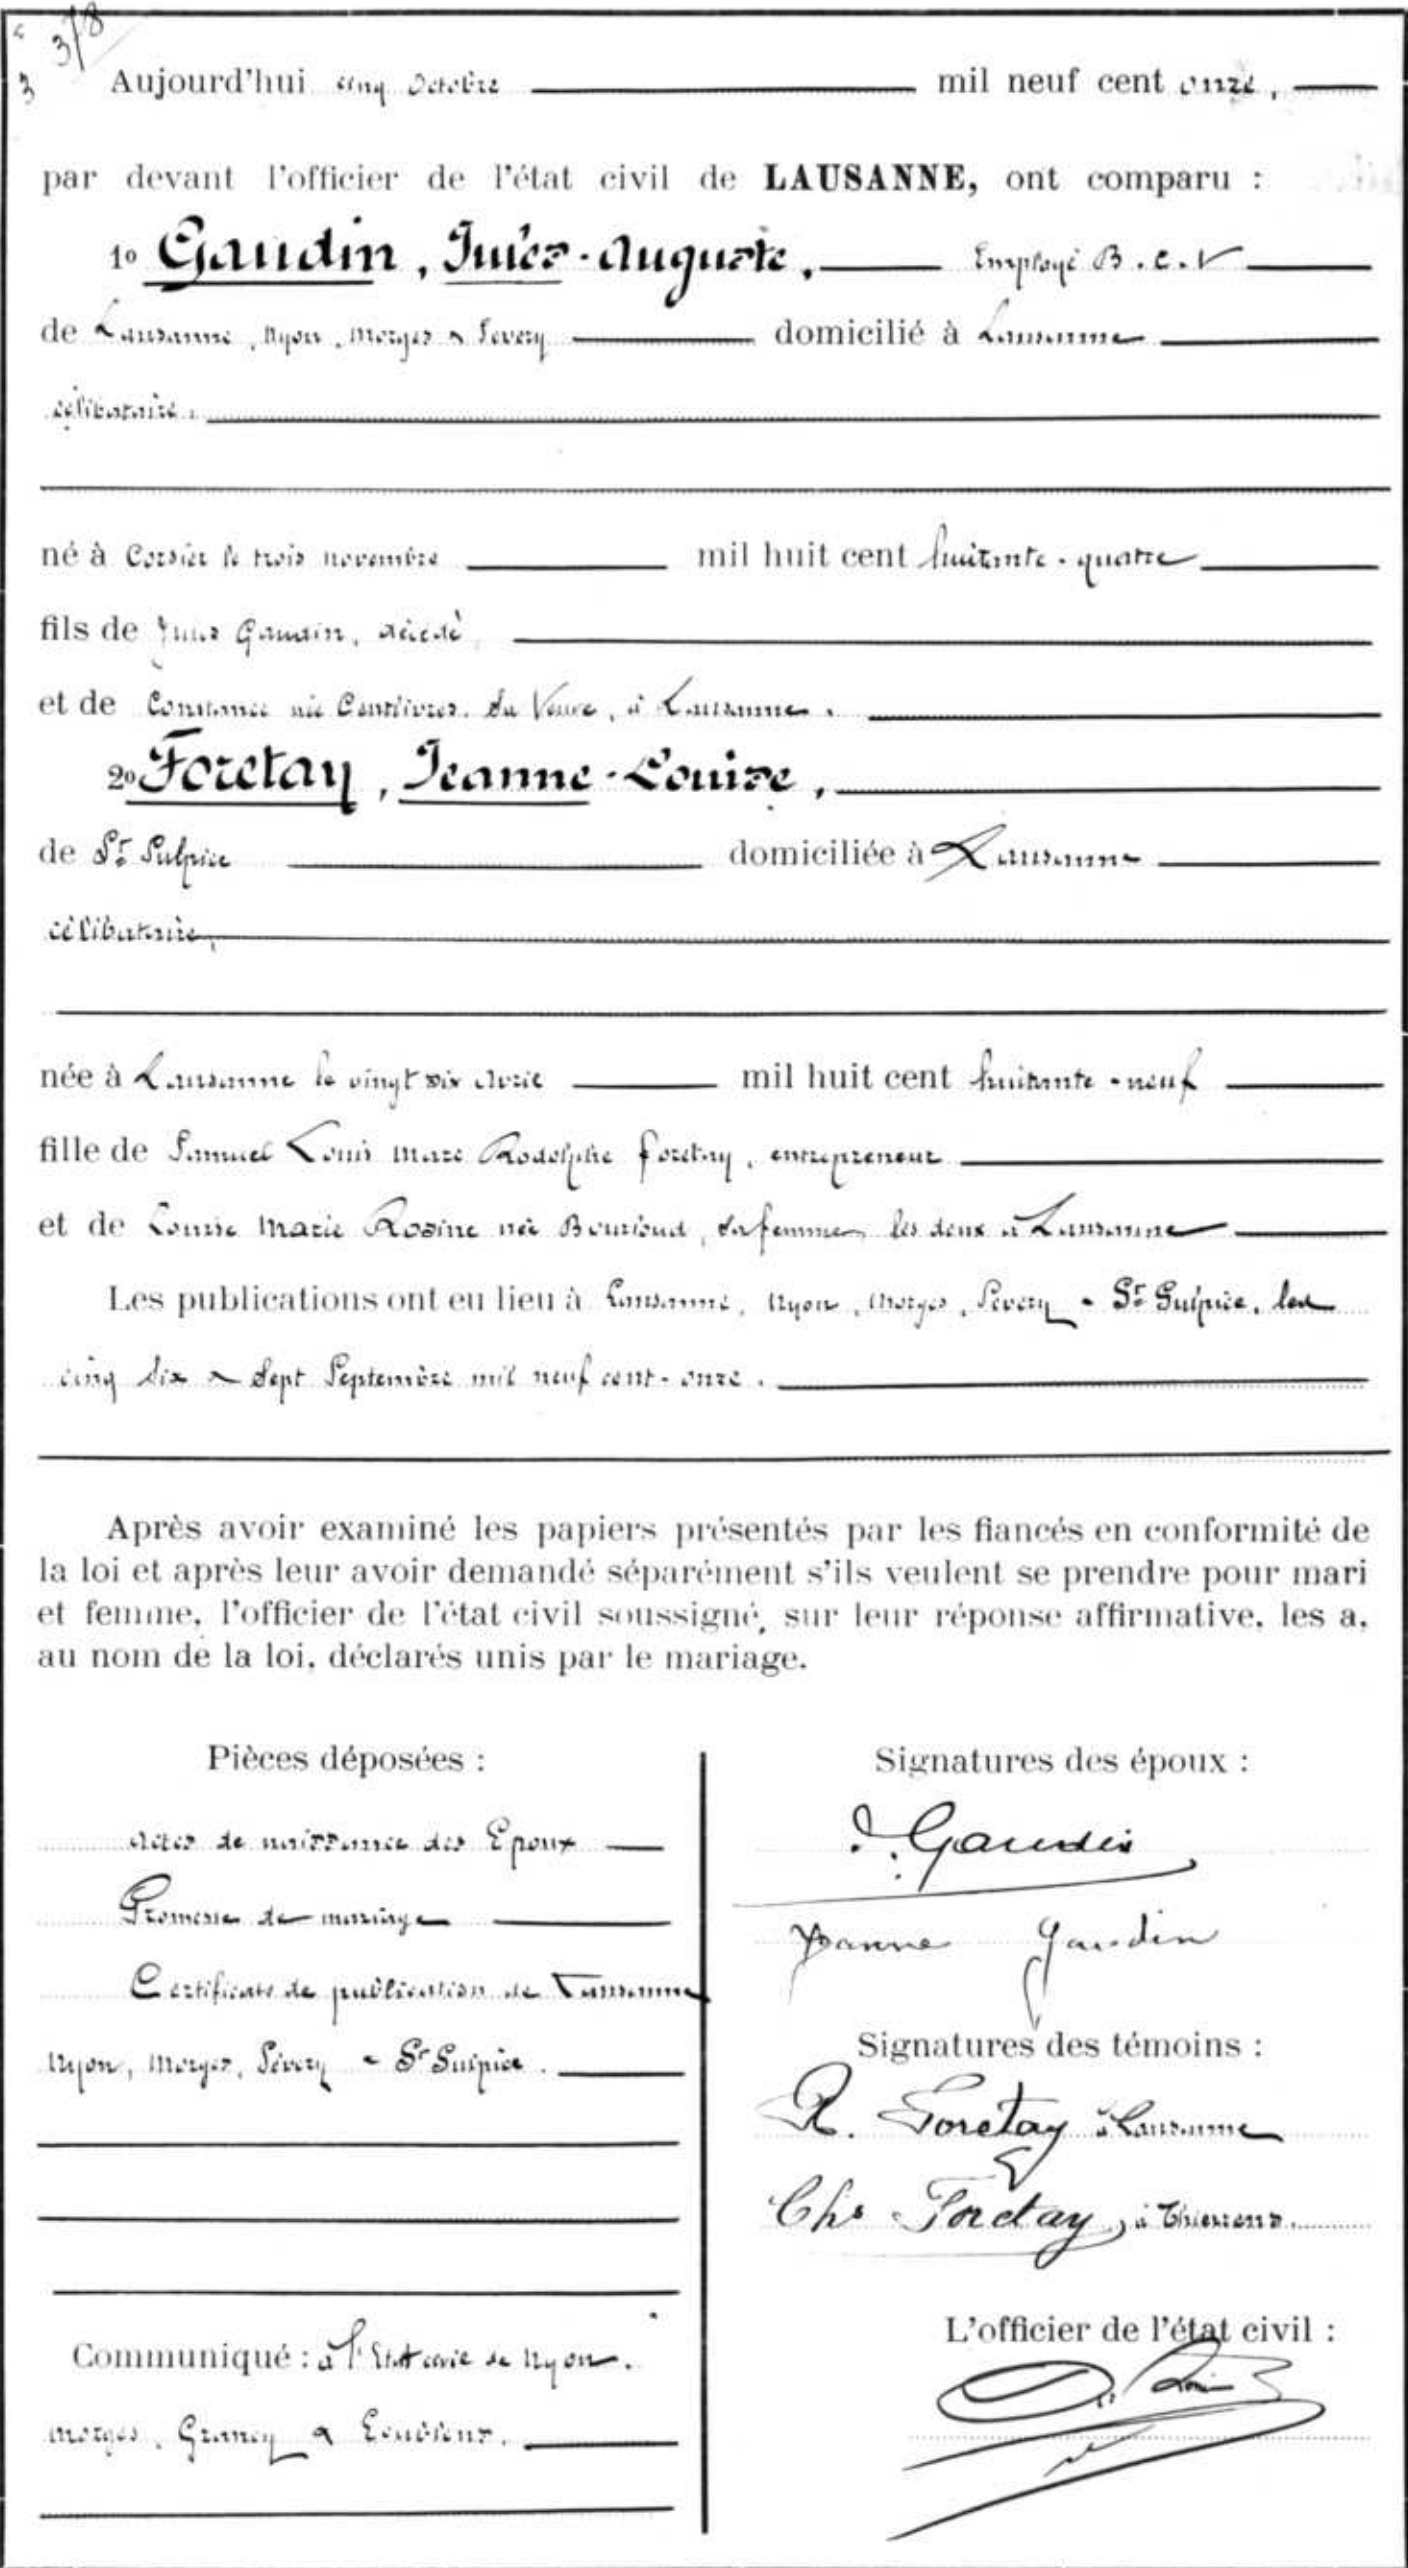 378
3
Aujourd'hui cinq Octobre mil neuf cent onze,
par devant l'officier de l'état civil de LAUSANNE, ont comparu :
1º Gaudin, Jules-Auguste, Employé B.C.V
de Lausanne, Nyon, Morges & Sévery domicilié à Lausanne
célibataire.
né à Corsier le trois novembre mil huit cent huitante-quatre
fils de Jules Gaudin, décédé,
et de Constance née Centlivres. Sa Veuve, à Lausanne.
2º Foretay, Jeanne-Louise,
de St Sulpice domiciliée à Lausanne
célibataire,
née à Lausanne le vingt six Avril mil huit cent huitante-neuf
fille de Samuel Louis Marc Rodolphe Foretay, entrepreneur
et de Louise Marie Rosine née Bourloud, sa femme, les deux à Lausanne
Les publications ont eu lieu à Lausanne, Nyon, Morges, Sévery & St Sulpice, les
cinq six & sept Septembre mil neuf cent-onze.
Après avoir examiné les papiers présentés par les fiancés en conformité de
la loi et après leur avoir demandé séparément s'ils veulent se prendre pour mari
et femme, l'officier de l'état civil soussigné, sur leur réponse affirmative, les a,
au nom de la loi, déclarés unis par le mariage.
Pièces déposées :
Actes de naissance des Epoux
Promesse de mariage
Certificats de publication de Lausanne
Nyon, Morges, Sévery & St Sulpice.
Communiqué : à l'Etat civil de Nyon.
Morges, Grancy & Ecublens.
Signatures des époux :
J. Gaudin
Jeanne Gaudin
Signatures des témoins :
R. Foretay à Lausanne
Chs Foretay, à Thierrens.
L'officier de l'état civil :